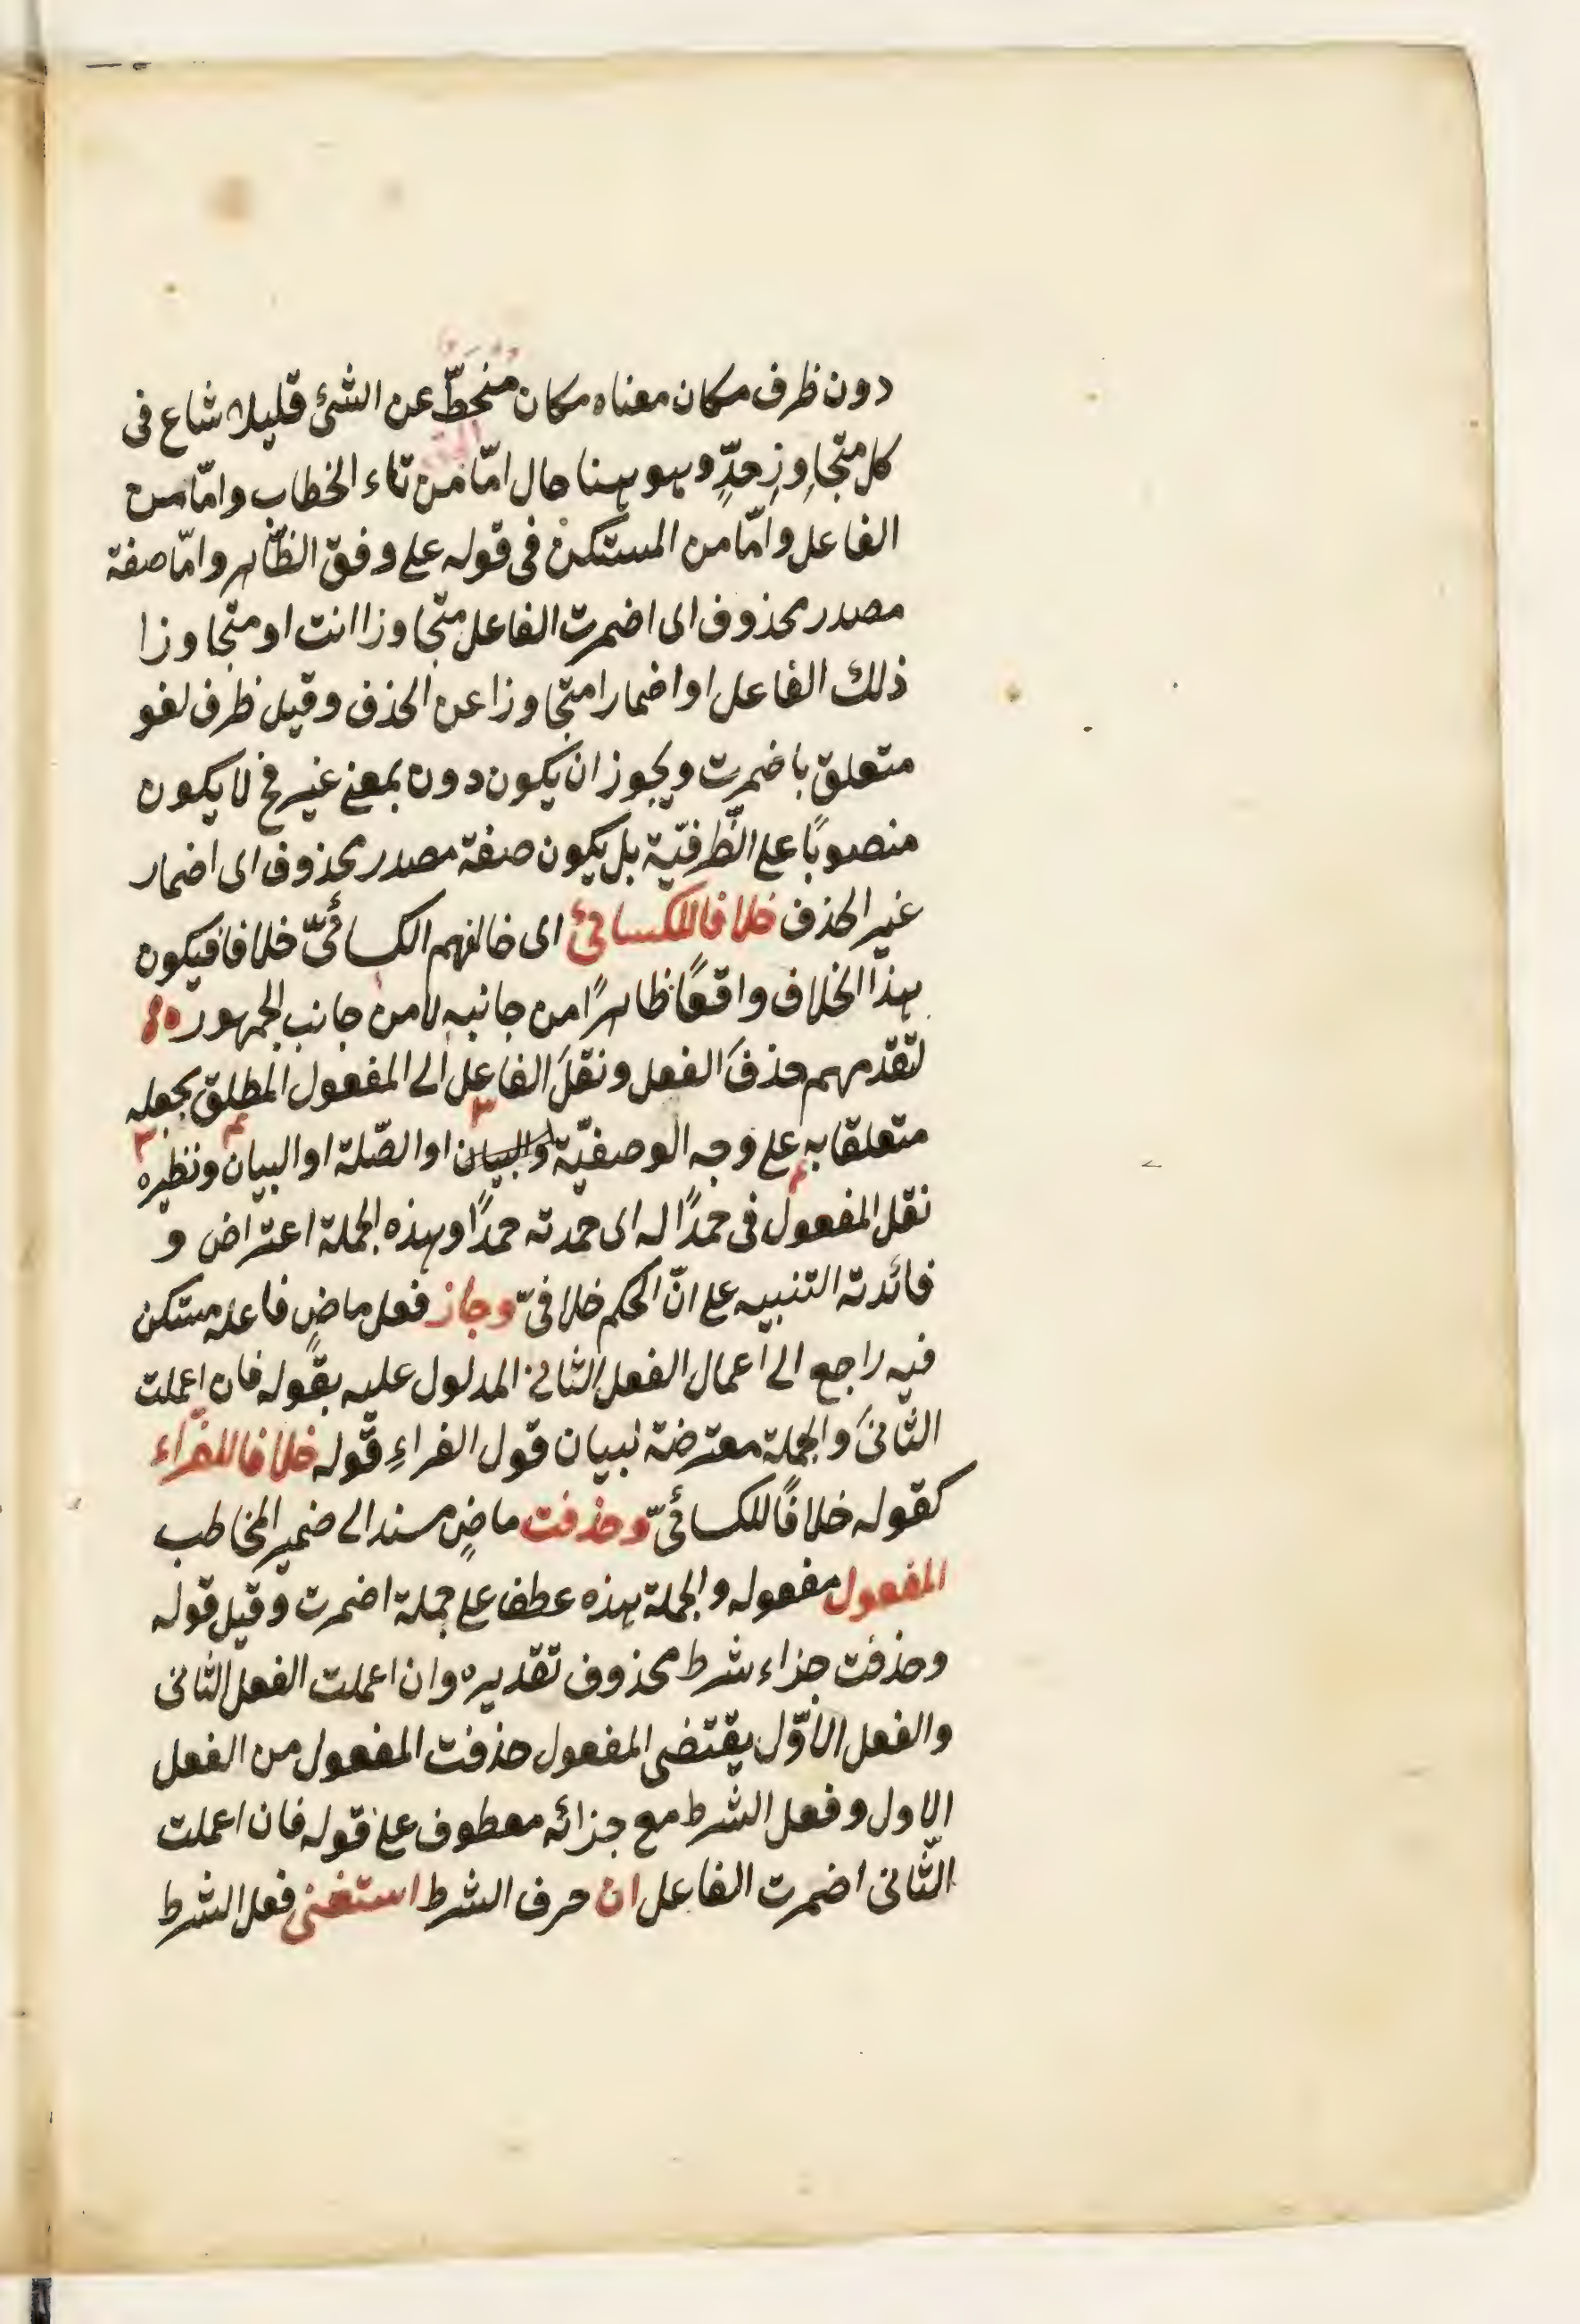 دون ظرف مكان معناه مكان مُنحطّ عن الشئ قليلا شاع فى
كل متجاوِزِ حدٍّ وهو ههنا حال امّا من تاء الخطاب وامّا من
الفاعل وامّا من المستكن فى قوله على وفق الظّاهر وامّا صفة
مصدر محذوف اى اضمرت الفاعل متجاوزا انت او متجاوزا
ذلك الفاعل او اضمارا متجاوزا عن الحذف وقيل ظرف لغو
متعلق باضمرت ويجوز ان يكون دون بمعنى غير فح لا يكون
منصوبًا على الظّرفيّة بل يكون صفة مصدر محذوف اى اضمار
غير الحذف خلافا للكسائئ اى خالفهم الكسائىّ خلافا فيكون
هذا الخلاف واقعًا ظاهرًا من جانبه لا من جانب الجمهور
لتقدمهم حذفَ الفعل ونقلَ الفاعل الى المفعول المطلق بجعله
متعلقا به على وجه الوصفيّة والبيان او الصّلة او البيان ونظيره
نقل المفعول فى حمدًا له اى حمدته حمدًا وهذه الجملة اعتراض و
فائدته التنبيه على انّ الحكم خلافىّ وجاز فعل ماضٍ فاعله مستكن
فيه راجع الى اعمال الفعل الثانى المدلول عليه بقوله فان اعملت
الثّانىَ والجملة معترضة لبيان قول الفراءِ قوله خلافا للفرّاء
كقوله خلافًا للكسائىّ وحذفت ماضٍ مسند الى ضمير المخاطب
المفعول مفعوله والجملة هذه عطف على جملة اضمرت وقيل قوله
وحذفت جزاء شرط محذوف تقديره وان اعملت الفعل الثانى
والفعل الاوّل يقتضى المفعول حذفت المفعول من الفعل
الاول وفعل الشرط مع جزائه معطوف على قوله فان اعملت
الثّانى اضمرت الفاعل ان حرف الشرط استغنى فعل الشرط